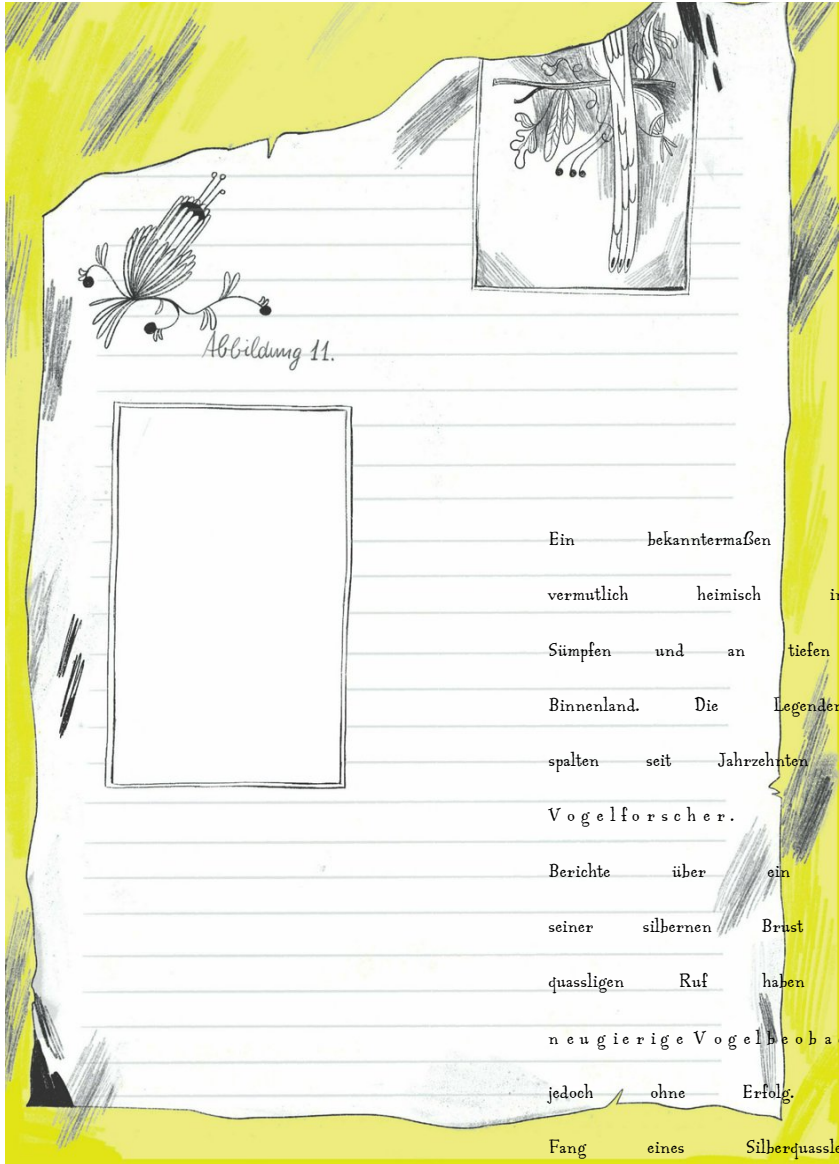 Abbildung 11.
Ein bekanntermaßen
vermutlich heimisch
Sümpfen und an tiefen
Binnenland. Die Legenden
spalten seit Jahrzehnten
Vogelforscher.
Berichte über ein
seiner silbernen Brust
quassligen Ruf haben
neugierige
jedoch ohne Erfolg.
Fang eines